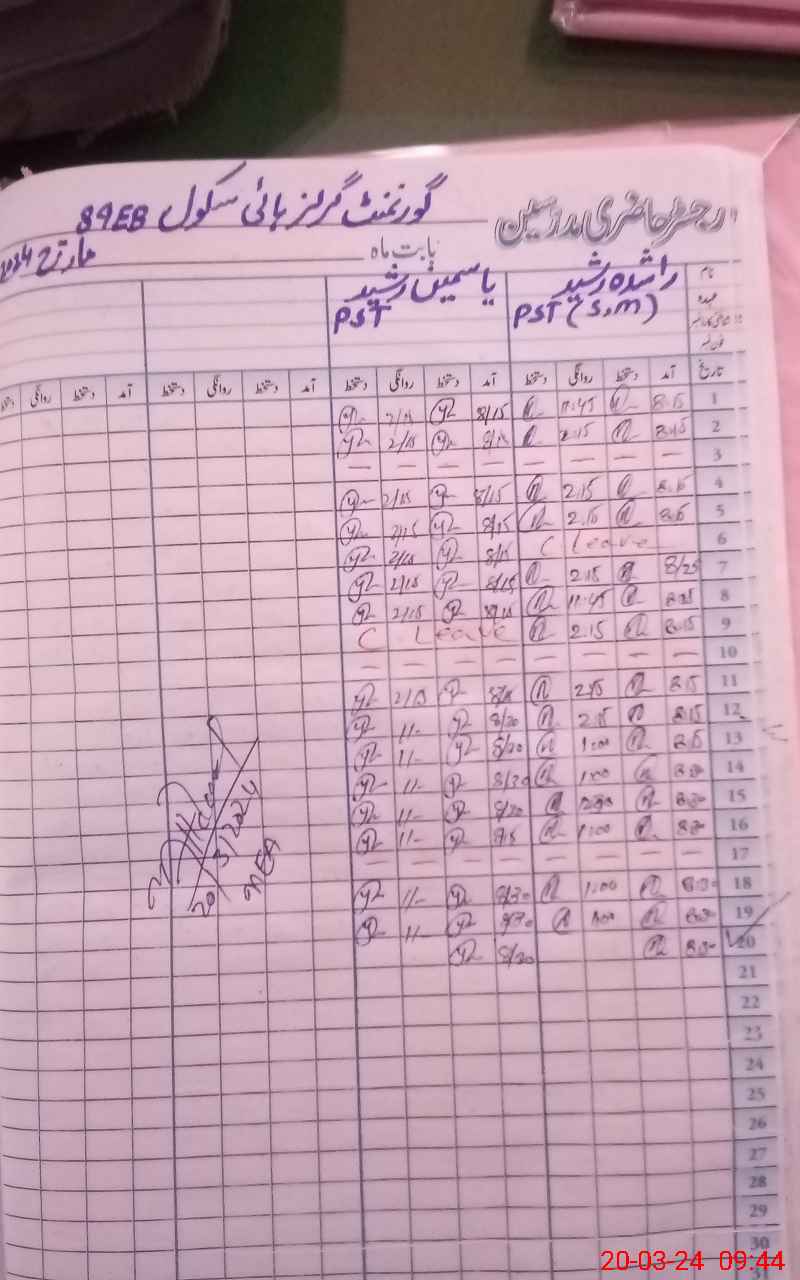 رجسٹر حاضری مدرسین گورنمنٹ گرلز ہائی سکول 89EB
بابت ماہ مارچ 2024
نام راشدہ رشید یاسمین رشید
عہدہ PST (S,m) PST
تاریخ آمد دستخط روانگی دستخط آمد دستخط روانگی دستخط آمد دستخط روانگی دستخط آمد دستخط روانگی دستخط
1 8.15 11.45 8/15 2/15
2 8.15 2.15 8/15 2/15
3 — — — — — — — —
4 8.15 2.15 8/15 2/15
5 8.15 2.15 8/15 2/15
6 C Leave 8/15 2/15
7 8/25 2.15 8/15 2/15
8 11.45 8/15 2/15
9 8.15 2.15 C Leave
10 — — — — — — — —
11 8.15 2.15 2/15
12 8.15 2.15 8/20 11-
13 8.15 1:00 8/20 11-
14 8.30 1:00 8/30 11-
15 8.30 8/20 11-
16 8.30 1:00 11-
17 — — — — — — — —
18 8:30 1:00 8/30 11-
19 8:30 1:00 8/30 11-
20 8:30 8/20
21
22
23
24
25
26
27
28
29
30
20/3/2024
20-03-24 09:44